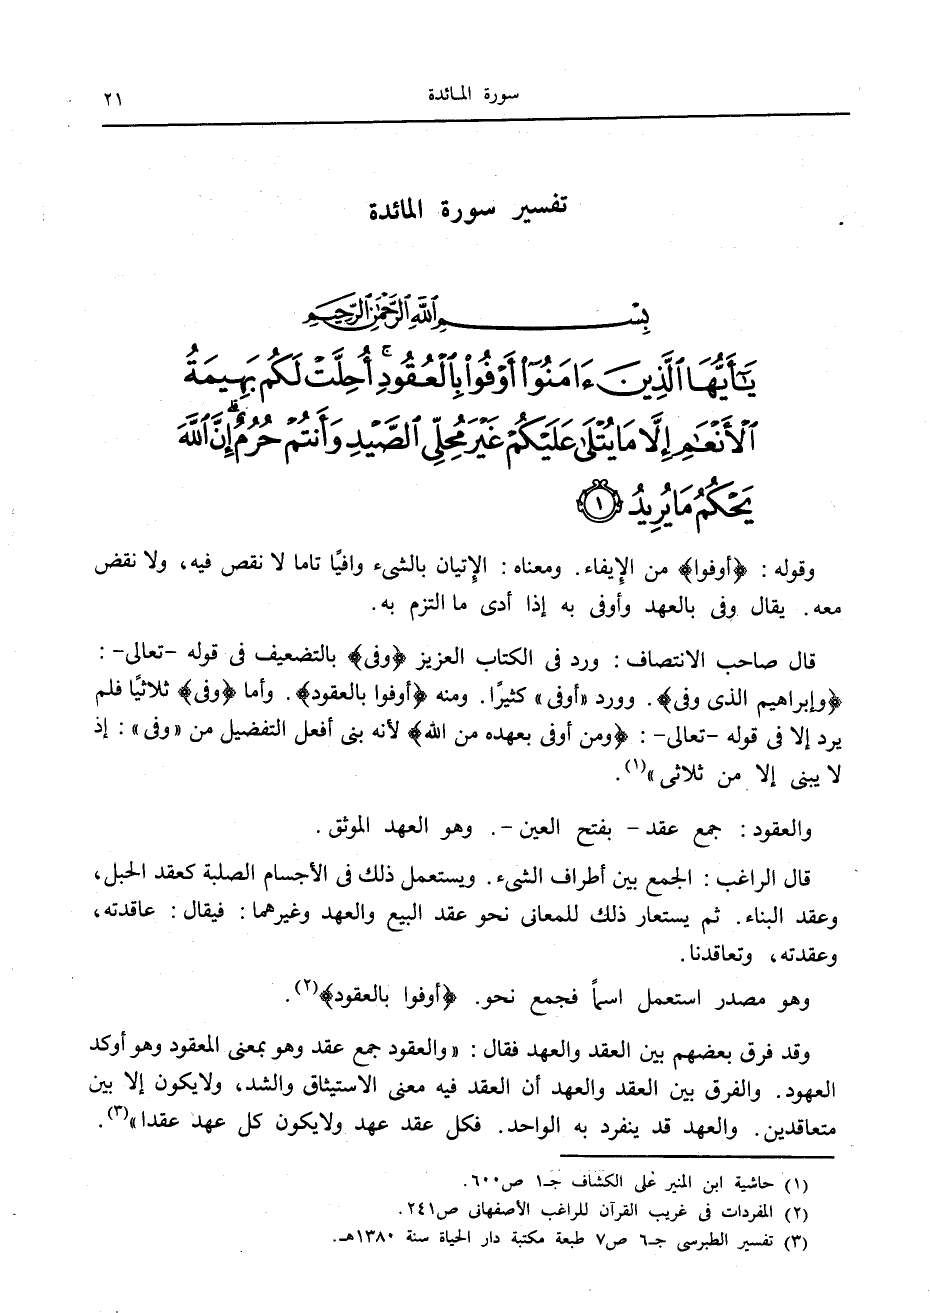 سورة المائدة ٢١
تفسير سورة المائدة
بِسْمِ اللَّهِ الرَّحْمَٰنِ الرَّحِيمِ
يَٰٓأَيُّهَا ٱلَّذِينَ ءَامَنُوٓا۟ أَوْفُوا۟ بِٱلْعُقُودِ ۚ أُحِلَّتْ لَكُم بَهِيمَةُ
ٱلْأَنْعَٰمِ إِلَّا مَا يُتْلَىٰ عَلَيْكُمْ غَيْرَ مُحِلِّى ٱلصَّيْدِ وَأَنتُمْ حُرُمٌ ۗ إِنَّ ٱللَّهَ
يَحْكُمُ مَا يُرِيدُ ﴿١﴾
وقوله : ﴿أوفوا﴾ من الإيفاء. ومعناه : الإتيان بالشىء وافيًا تاما لا نقص فيه، ولا نقض
معه. يقال وفى بالعهد وأوفى به إذا أدى ما التزم به.
قال صاحب الانتصاف : ورد فى الكتاب العزيز ﴿وفى﴾ بالتضعيف فى قوله -تعالى- :
﴿وإبراهيم الذى وفى﴾. وورد «أوفى» كثيرًا. ومنه ﴿أوفوا بالعقود﴾. وأما ﴿وفى﴾ ثلاثيًا فلم
يرد إلا فى قوله -تعالى- : ﴿ومن أوفى بعهده من الله﴾ لأنه بنى أفعل التفضيل من «وفى» : إذ
لا يبنى إلا من ثلاثى»(١).
والعقود : جمع عقد - بفتح العين -. وهو العهد الموثق.
قال الراغب : الجمع بين أطراف الشىء. ويستعمل ذلك فى الأجسام الصلبة كعقد الحبل،
وعقد البناء. ثم يستعار ذلك للمعانى نحو عقد البيع والعهد وغيرهما : فيقال : عاقدته،
وعقدته، وتعاقدنا.
وهو مصدر استعمل اسماً فجمع نحو. ﴿أوفوا بالعقود﴾(٢).
وقد فرق بعضهم بين العقد والعهد فقال : «والعقود جمع عقد وهو بمعنى المعقود وهو أوكد
العهود. والفرق بين العقد والعهد أن العقد فيه معنى الاستيثاق والشد، ولايكون إلا بين
متعاقدين. والعهد قد ينفرد به الواحد. فكل عقد عهد ولايكون كل عهد عقدا»(٣).
(١) حاشية ابن المنير على الكشاف جـ١ ص٦٠٠.
(٢) المفردات فى غريب القرآن للراغب الأصفهانى ص٢٤١.
(٣) تفسير الطبرسى جـ٦ ص٧ طبعة مكتبة دار الحياة سنة ١٣٨٠هـ.